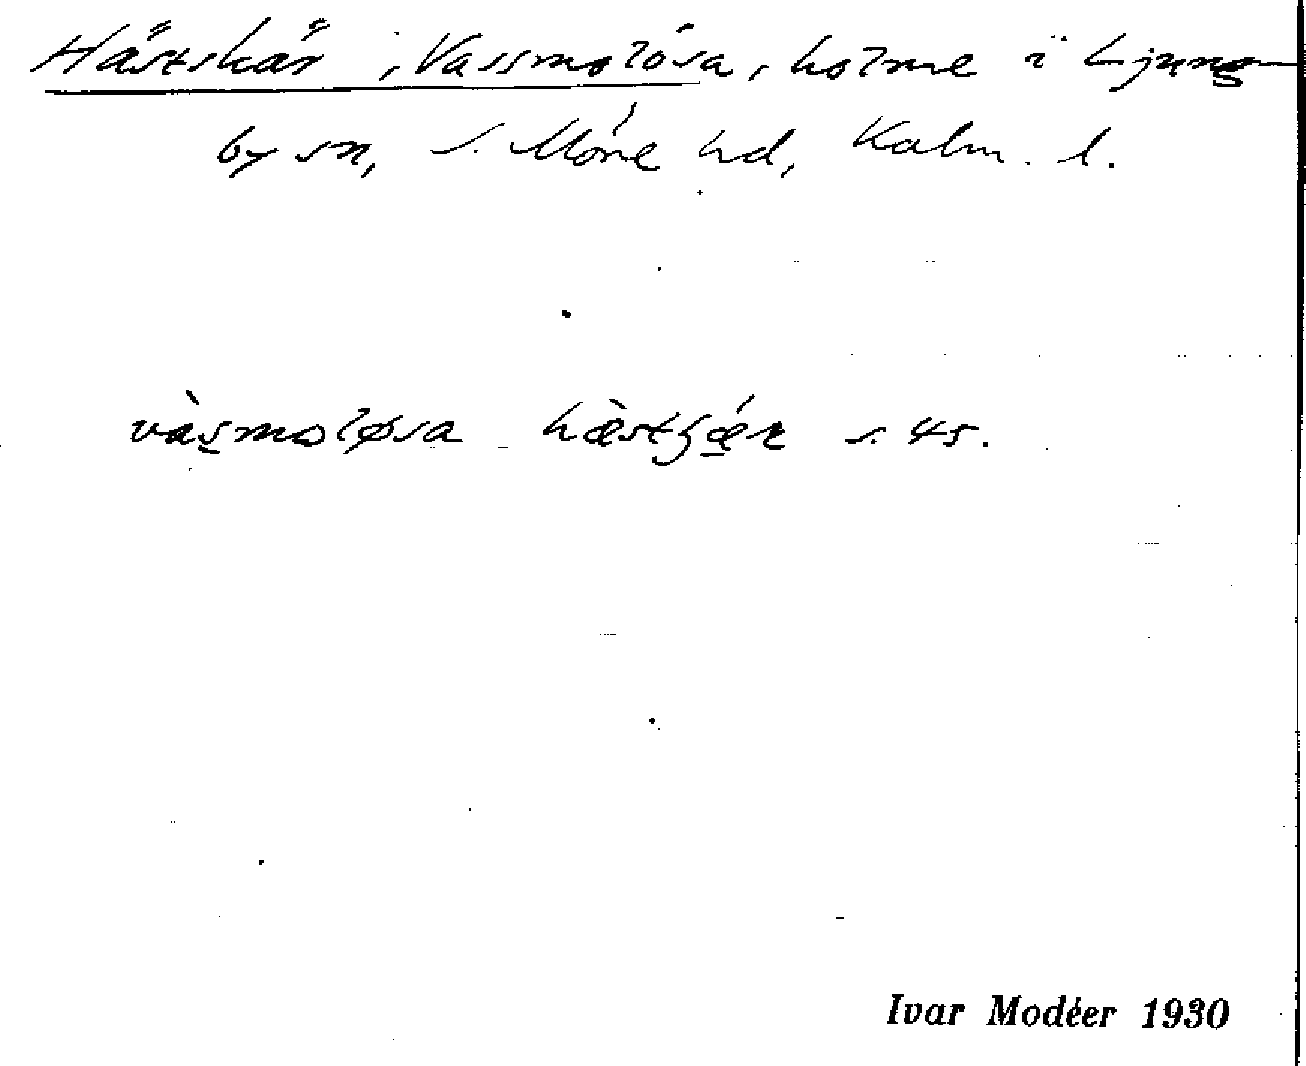 Hästskär, Vassmolösa, holme i Ljung-
by sn, S. Möre hd, Kalm. l.
vàsmoløsa hæ̀stʂǽr s. 45.
Ivar Modéer 1930